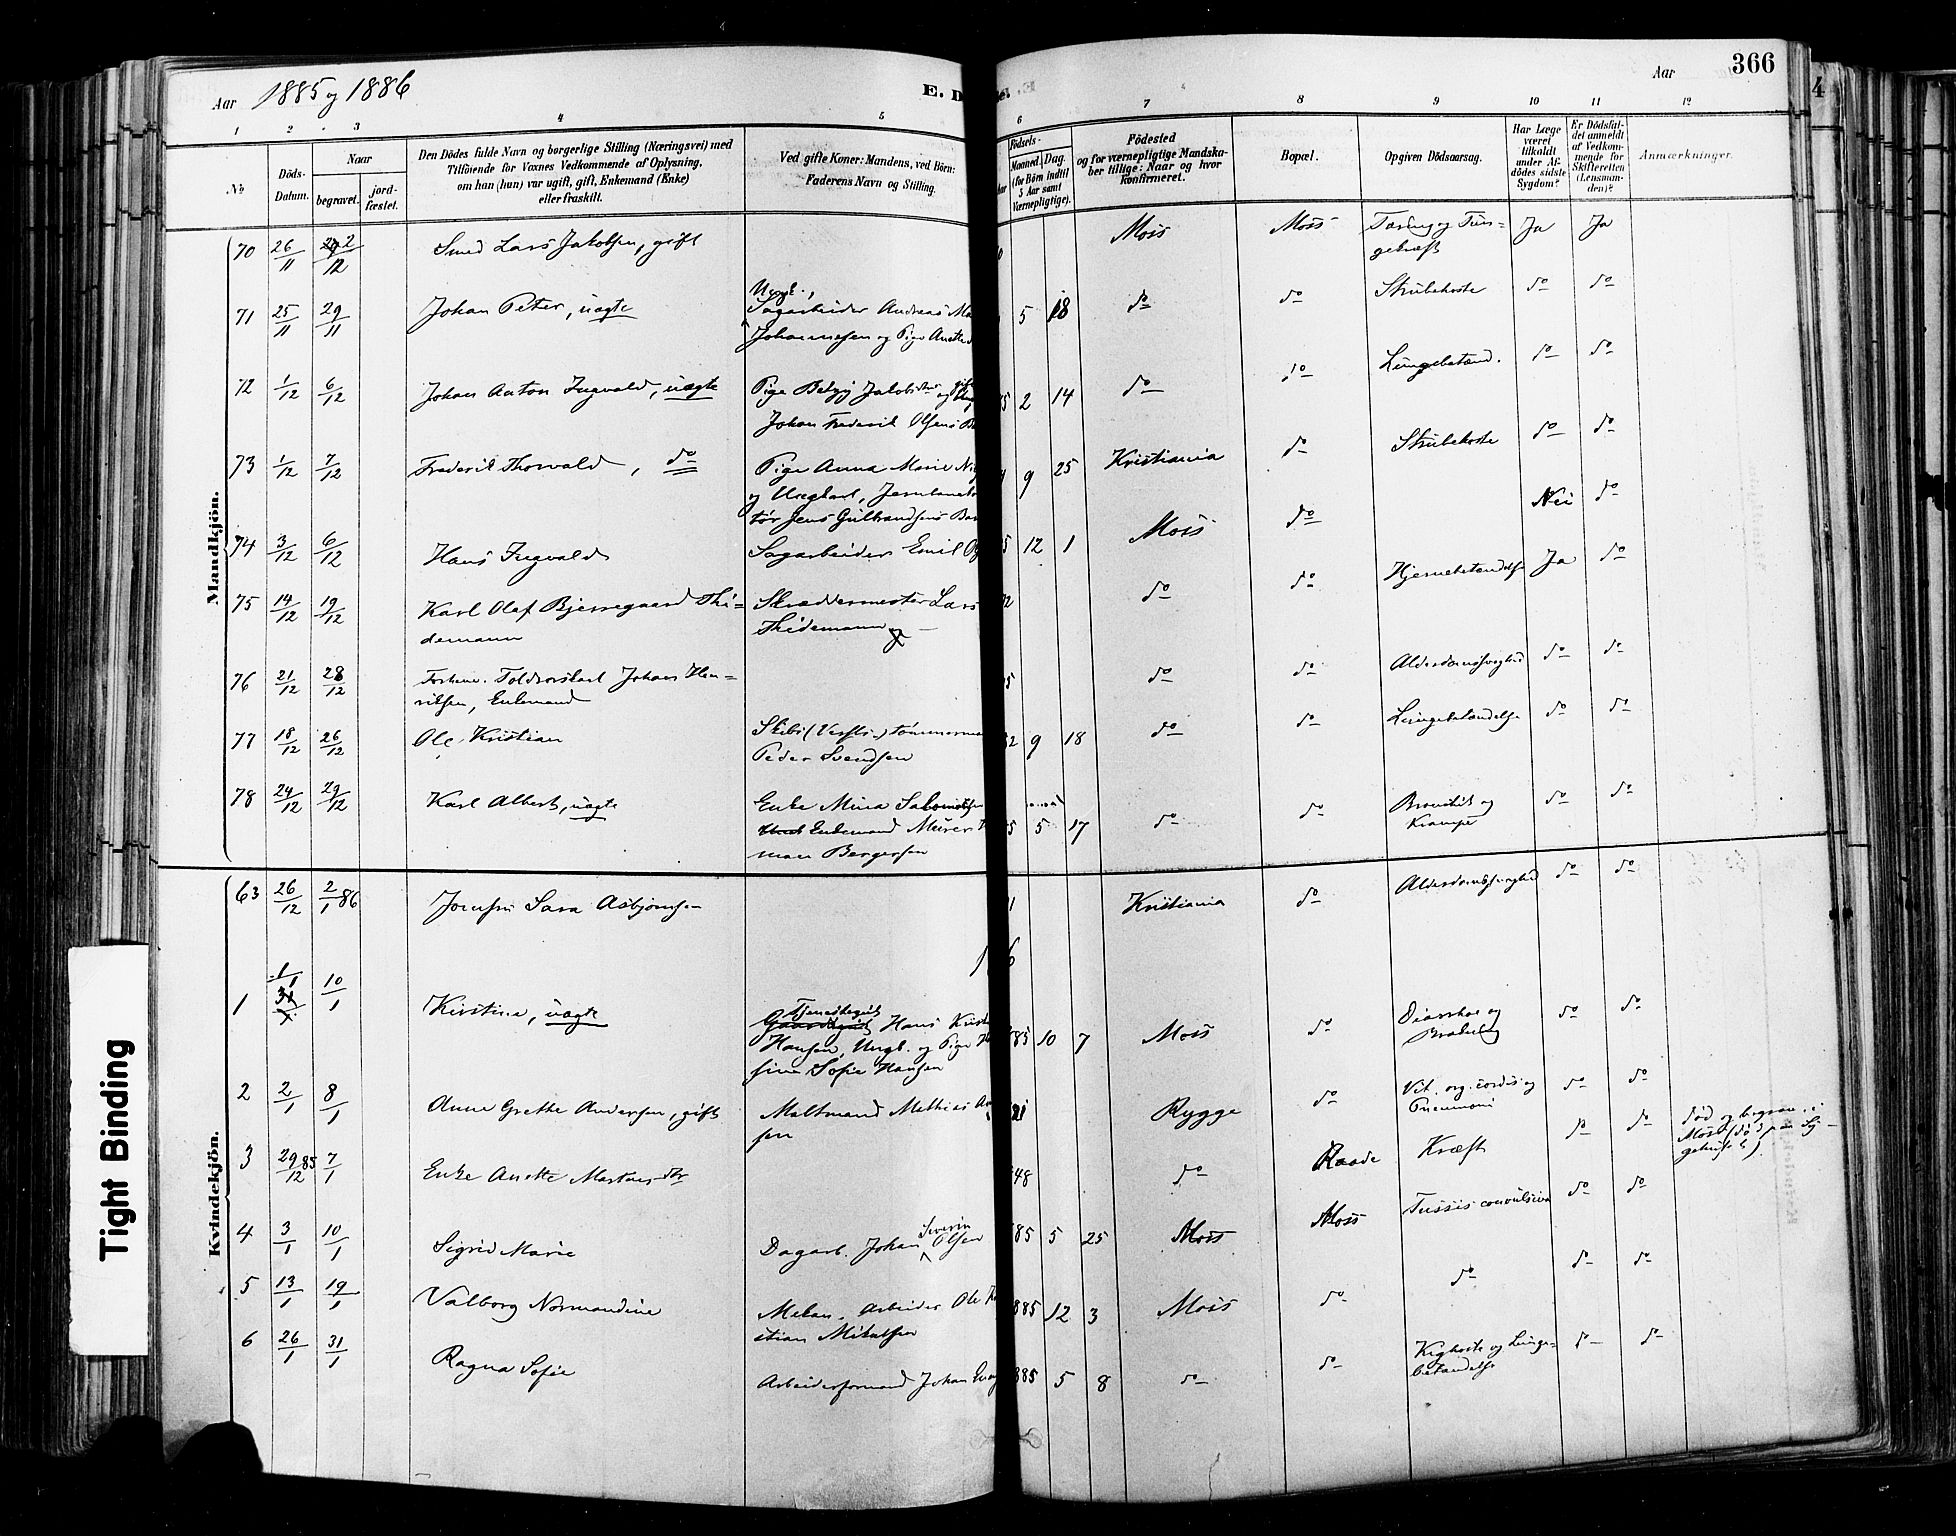 Aar 1885 og 1886
E. D
Aar
366
1 2 3 4 5 6 7 8 9 10 11 12
No
Døds-Datum.
Naar
begravet.
jord-fæstet.
Den Dødes fulde Navn og borgerlige Stilling (Næringsvei) med
Tilføiende for Voxnes Vedkommende af Oplysning,
om han (hun) var ugift, gift, Enkemand (Enke)
eller fraskilt.
Ved gifte Koner: Mandens, ved Børn:
Faderens Navn og Stilling.
Fødsels-
Maaned. Dag.
(for Børn indtil
5 Aar samt
Værnepligtige).
Fødested
og for værnepligtige Mandska-
ber tillige: Naar og hvor
konfirmeret.
Bopæl.
Opgiven Dødsaarsag.
Har Læge
været
tilkaldt
under Af-
dødes sidste
Sygdom?
Er Dødsfal-
det anmeldt
af Vedkom-
mende for
Skifteretten
(Lensman-
den)?
Anmærkninger.
Mandkjøn.
70 26/11 2/12 Smed Lars Jakobsen, gift Moss Moss Tæring og Tun-
gekræft Ja Ja
71 25/11 29/11 Johan Peter, uægte Ungk.,
Sagarbeider Andreas
Johannesen og Pige Anette 5 18 do do Strubehoste do do
72 1/12 6/12 Johan Anton Ingvald, uægte Pige Jakobs
Johan Frederik Olsens 5 2 14 do do Lungebetænd. do do
73 1/12 7/12 Frederik Thorvald, do Pige Anna Marie
og Ungkarl,
tør Jens Gulbrandsens 9 25 Kristiania do Strubehoste do do
74 3/12 6/12 Hans Ingvald Sagarbeider Emil 5 12 1 Moss do Nei do
75 14/12 19/12 Karl Olaf Bjerregaard Thi-
demann Skræddermester Lars
Thidemann do do Hjernebetændelse Ja do
76 21/12 28/12 Toldrorskarl Johan Hen-
riksen, Enkemand 5 do do Alderdomssvaghed do do
77 18/12 26/12 Ole Kristian Skibs (Verfts-) tømmerma
Peder Svendsen 82 9 18 do do Lungebetændelse do do
78 24/12 29/12 Karl Albert, uægte Enke Mina
Enkemand Murer
man Bergersen 5 5 17 do do Bronchit og
Krampe do do
Kvindekjøn.
63 26/12 2/1 86 Sara Asbjørnsen 1 Kristiania do Alderdomssvaghed do do
1 1/1 10/1 Kirstine, uægte Tjenestegut
Hans Krist
Hansen, Ungk. og Pige
sine Sofie Hansen 85 10 7 Moss do Diarrhoe og
do do
2 2/1 8/1 Anne Grethe Andersen, gift Maltmand Mathias An
sen 21 Rygge do Vit. org. cordis og
Pneumoni do do
3 29/12 85 7/1 Enke Anette 48 do Raade Kræft do do Død og begrav. i
Moss
4 3/1 10/1 Sigrid Marie Dagarb. Johan Severin Olsen 85 5 25 Moss Moss Tussis convulsiva do do
5 13/1 19/1 Valborg Normandine Mekan. Arbeider Ole Kri
stian Mikalsen 885 12 3 Moss do do do do
6 26/1 31/1 Ragna Sofie Arbeidsformand Johan 885 5 8 do do Kighoste og Lunge-
betændelse do do
Tight Binding